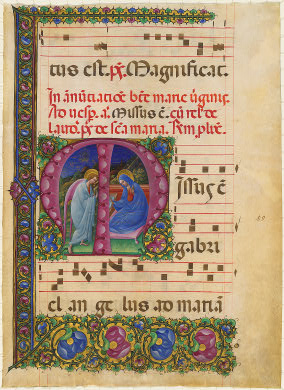 tus est. ps. Magnificat.
In annūtiatiōe bt̄e marie v̄ginis.
Ad vesp. a. Missus ē. cū rel. de
laud. ps. de sc̄a maria.
M issus ē
gabri
el an ge lus ad mariā